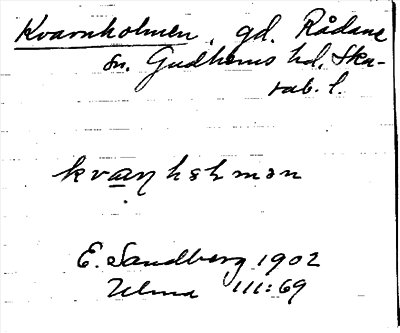 Kvarnholmen, gd. Rådane
sn. Gudhems hd. Ska-
rab. l.
E. Sandberg 1902
Ulma 111:69